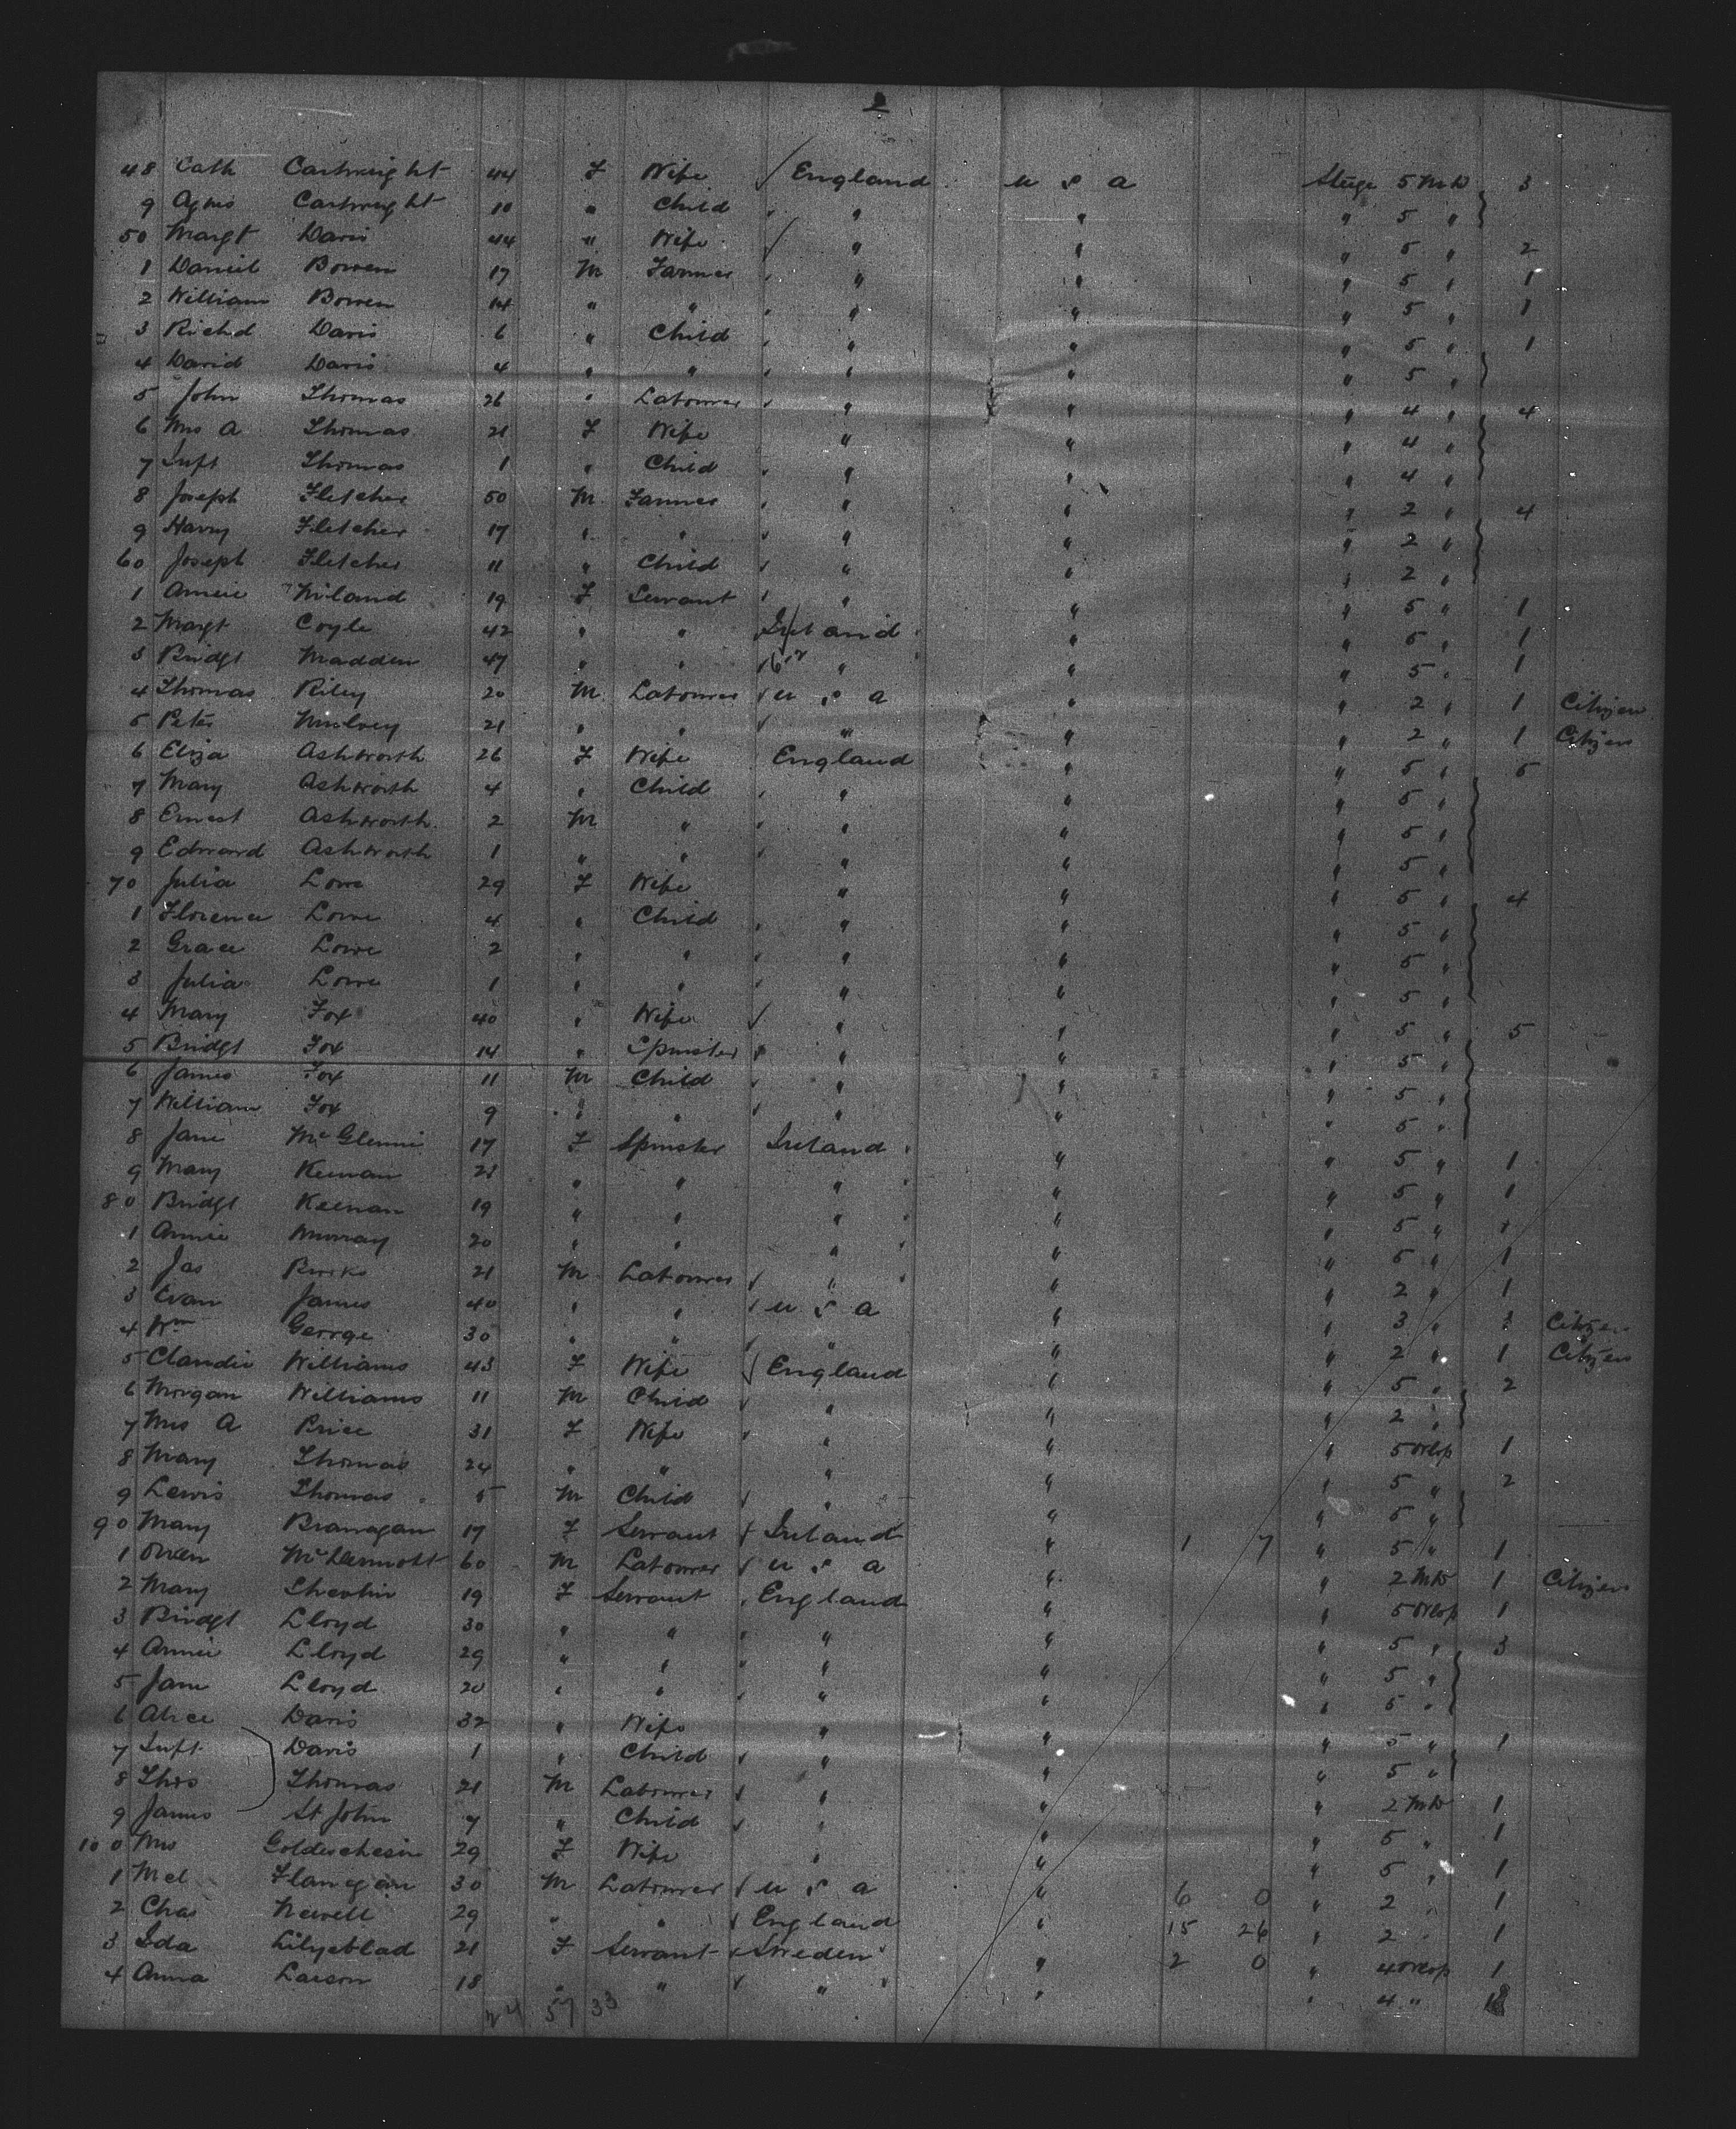 2
48 Cath Cartwright 44 F Wife England U S A Steege 5 Mk 3
9 Agnes Cartwright 10 " Child " " " 5 "
50 Margt Davis 44 " Wife " " " 5 " 2
1 Daniel Bowen 17 M Farmer " " " 5 " 1
2 William Bowen 14 " " " " " 5 " 1
3 Richd Davis 6 " Child " " " 5 " 1
4 David Davis 4 " " " " " 5 "
5 John Thomas 26 " Labourer " " " 4 " 4
6 Mrs A Thomas 21 F Wife " " " 4 "
7 Inft Thomas 1 " Child " " " 4 "
8 Joseph Fletcher 50 M Farmer " " " 2 " 4
9 Harry Fletcher 17 " " " " " 2 "
60 Joseph Fletcher 11 " Child " " " 2 "
1 Annie Niland 19 F Servant " " " 5 " 1
2 Margt Coyle 42 " " Ireland " " 5 " 1
3 Bridgt Madden 47 " " " " " 5 " 1
4 Thomas Riley 20 M Labourer U S A " " 2 " 1 Citizen
5 Peter Mulvey 21 " " " " " 2 " 1 Citizen
6 Eliza Ashworth 26 F Wife England " " 5 " 5
7 Mary Ashworth 4 " Child " " " 5 "
8 Ernest Ashworth 2 M " " " " 5 "
9 Edward Ashworth 1 " " " " " 5 "
70 Julia Lowe 29 F Wife " " " 5 " 4
1 Florence Lowe 4 " Child " " " 5 "
2 Grace Lowe 2 " " " " " 5 "
3 Julia Lowe 1 " " " " " 5 "
4 Mary Fox 40 " Wife " " " 5 " 5
5 Bridgt Fox 14 " Spinster " " " 5 "
6 James Fox 11 M Child " " " 5 "
7 William Fox 9 " " " " " 5 "
8 Jane McGlenni 17 F Spinster Ireland " " 5 " 1
9 Mary Keenan 21 " " " " " 5 " 1
80 Bridgt Keenan 19 " " " " " 5 " 1
1 Annie Murray 20 " " " " " 5 " 1
2 Jas 21 M Labourer " " " 2 " 1
3 Evan James 40 " " U S A " " 3 " 3 Citizen
4 Wm George 30 " " " " " 2 " 1 Citizen
5 Claudie Williams 43 F Wife England " " 5 " 2
6 Morgan Williams 11 M Child " " " 2 "
7 Mrs A Price 31 F Wife " " " 5 Orlop 1
8 Mary Thomas 24 " " " " " 5 " 2
9 Lewis Thomas 5 M Child " " " 5 "
90 Mary Branagan 17 F Servant Ireland " 1 7 " 5 " 1
1 Owen McDermott 60 M Labourer U S A " " 2 Mk 1 Citizen
2 Mary Shevlin 19 F Servant England " " 5 Orlop 1
3 Bridgt Lloyd 30 " " " " " 5 " 3
4 Annie Lloyd 29 " " " " " 5 "
5 Jane Lloyd 20 " " " " " 5 "
6 Alice Davis 32 " Wife " " " 5 " 1
7 Inft Davis 1 " Child " " " 5 "
8 Thos Thomas 21 M Labourer " " " 2 Mk 1
9 James St John 7 " Child " " " 5 " 1
100 Mrs 29 F Wife " " " 5 " 1
1 Mcl Flanegan 30 M Labourer U S A " 6 0 " 2 " 1
2 Chas Newell 29 " " England " 15 26 " 2 " 1
3 Ida Lilyeblad 21 F Servant Sweden " 2 0 " 4 Orlop 1
4 Anna Larson 18 " " " " " 4 "
57 33